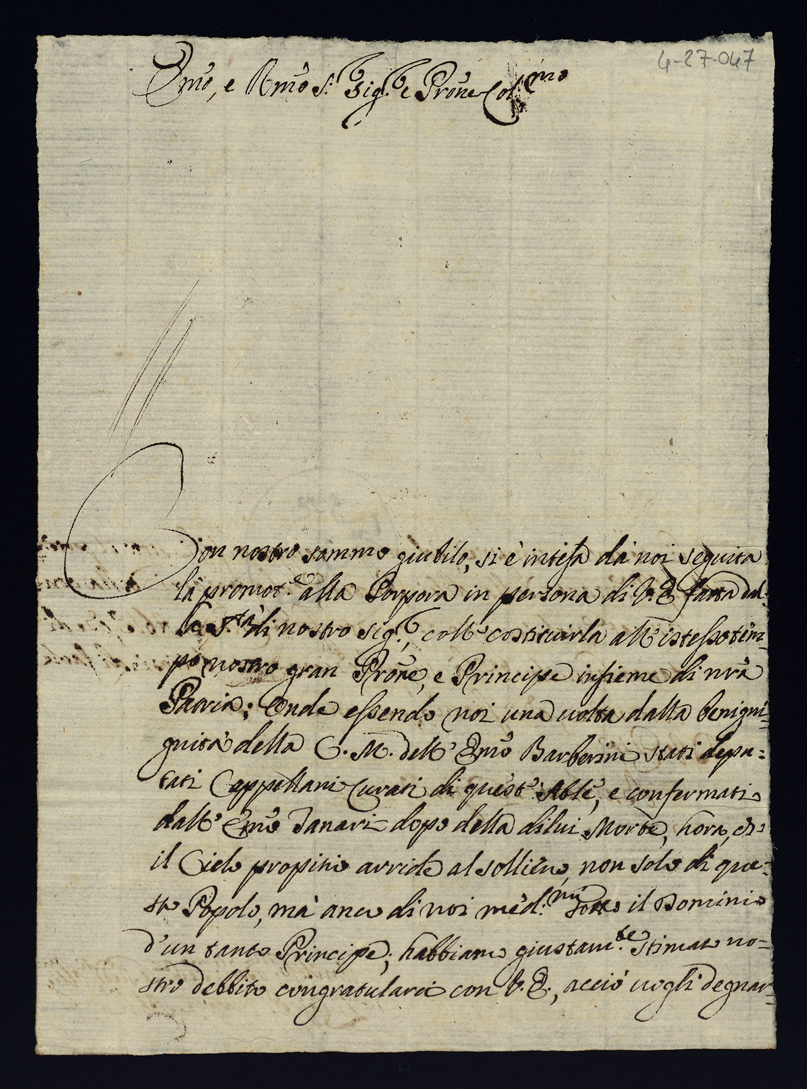 4-27-047
Emo, e Rmo S.r Sig.r e Prōne Col.mo
Con nostro sommo giubilo, si è intesa da noi seguita
la promot.e alla Porpora in persona di V. E. fatta dal-
la S.tà di nostro Sig.r, coll' costituirla all' istesso tem-
po nostro gran Prōne, e Principe insieme di nrā
Patria; Onde essendo noi una volta dalla benigni-
gnità della C. M. dell' Emō Barberini stati depu-
tati Cappellani Curati di quest' Abbē, e confermati
dall' Emō Tanari dopo della di lui Morte, hora, ch'
il Cielo propitio arride al sollievo, non solo di que-
sto Popolo, mà anco di noi med.mi sotto il Dominio
d'un tanto Principe; habbiam giustam.te Stimato no-
stro debbito congratularci con V. E., acciò vogli degnar-